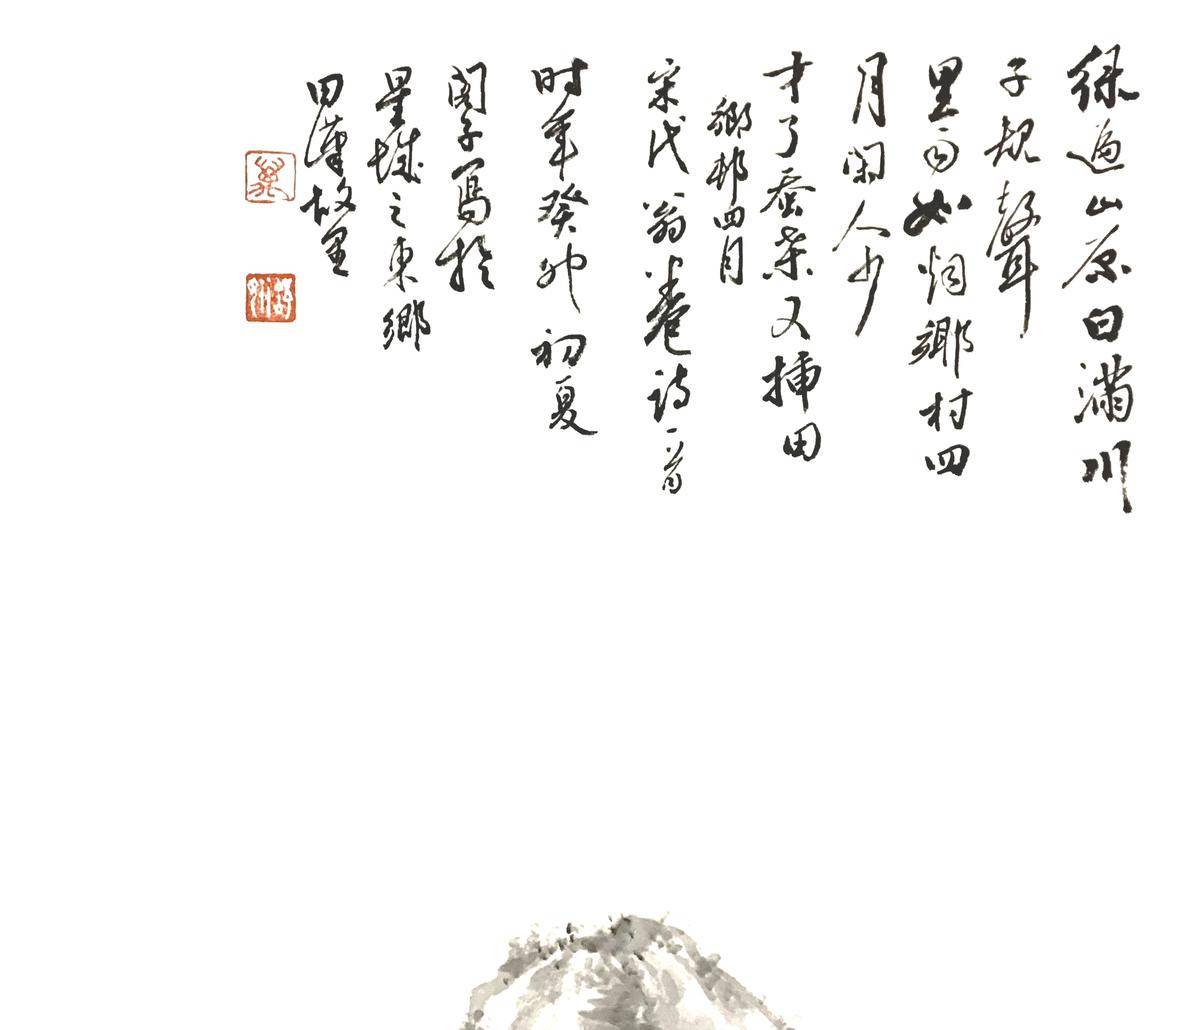 绿遍山原白满川
子规聲
里雨如烟鄉村四
月闲人少
才了蚕桒又揷田
鄉邨四月
宋代翁卷诗一首
时年癸卯初夏
阁子写於
星城之东鄉
田漢故里